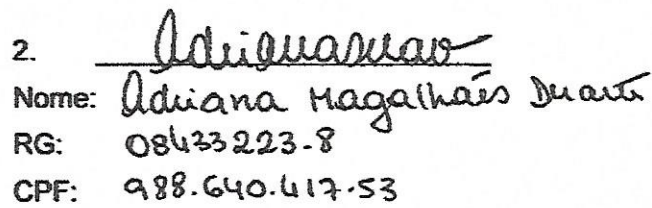 2.
Nome: Adriana Magalhães Duarte
RG: 08433223-8
CPF: 988.640.417-53